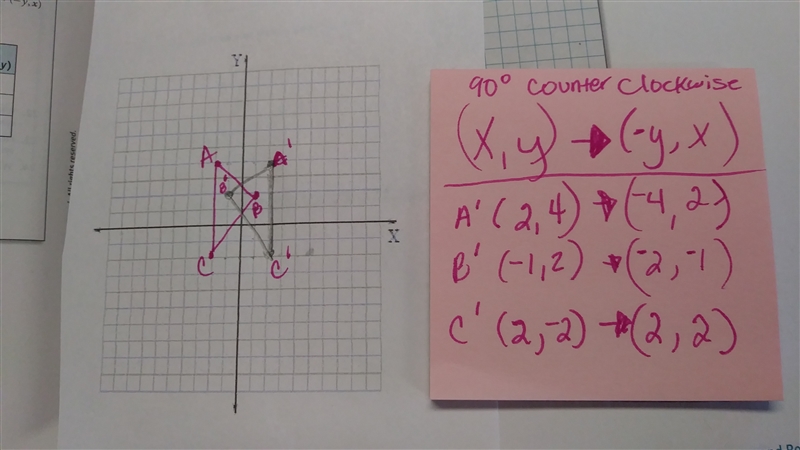 (-y, x)
y)
All rights reserved.
Y
A
A'
B'
B
X
C
C'
90° Counter Clockwise
(x, y) → (-y, x)
A' (2, 4) → (-4, 2)
B' (-1, 2) → (-2, -1)
C' (2, -2) → (2, 2)